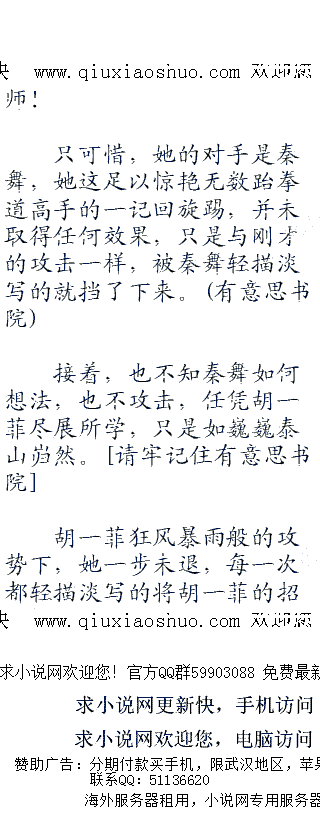 www.qiuxiaoshuo.com 欢迎您
师！
只可惜，她的对手是秦
舞，她这足以惊艳无数跆拳
道高手的一记回旋踢，并未
取得任何效果，只是与刚才
的攻击一样，被秦舞轻描淡
写的就挡了下来。(有意思书
院)
接着，也不知秦舞如何
想法，也不攻击，任凭胡一
菲尽展所学，只是如巍巍泰
山岿然。[请牢记住有意思书
院]
胡一菲狂风暴雨般的攻
势下，她一步未退，每一次
都轻描淡写的将胡一菲的招
www.qiuxiaoshuo.com 欢迎您
求小说网欢迎您！官方QQ群59903088 免费最新
求小说网更新快，手机访问
求小说网欢迎您，电脑访问
赞助广告：分期付款买手机，限武汉地区，苹果
联系QQ：51136620
海外服务器租用，小说网专用服务器